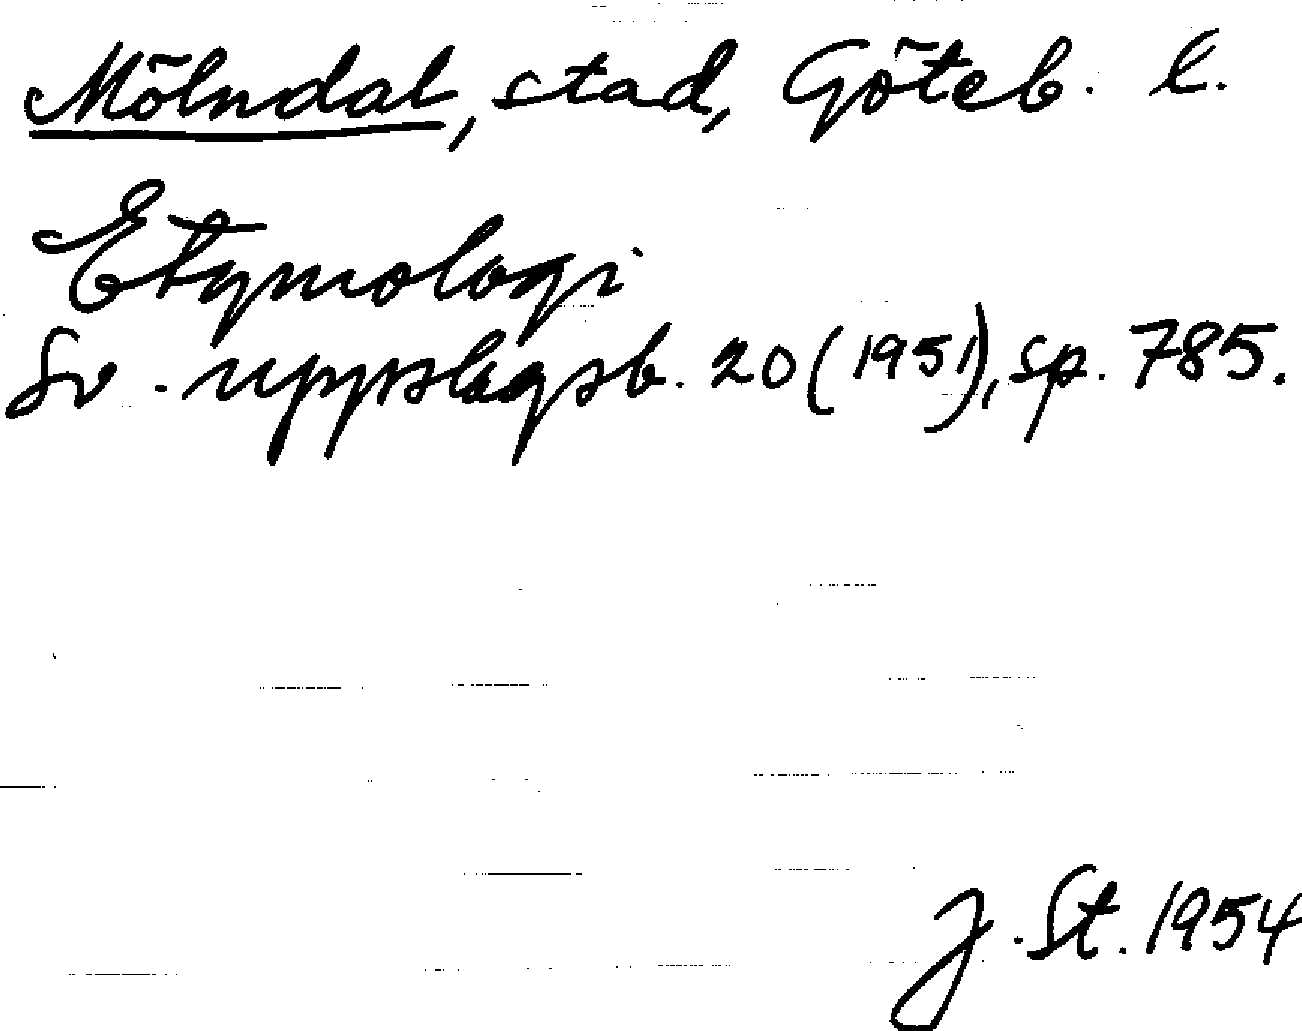 Mölndal, stad, Göteb. l.
Etymologi
Sv. uppslagsb. 20 (1951), sp. 785.
J. St. 1954